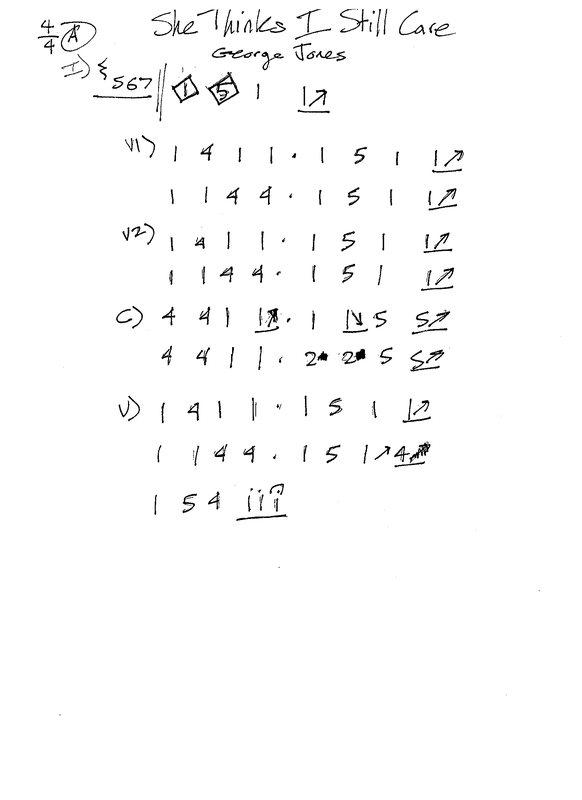 4/4 A She Thinks I Still Care
George Jones
I) { 567 || 1 5 1 1↗
V1) 1 4 1 1 . 1 5 1 1↗
1 1 4 4 . 1 5 1 1↗
V2) 1 4 1 1 . 1 5 1 1↗
1 1 4 4 . 1 5 1 1↗
C) 4 4 1 1↗ . 1 1↘ 5 5↗
4 4 1 1 . 2 2 5 5↗
V) 1 4 1 1 . 1 5 1 1↗
1 1 4 4 . 1 5 1↗4
1 5 4 i i i